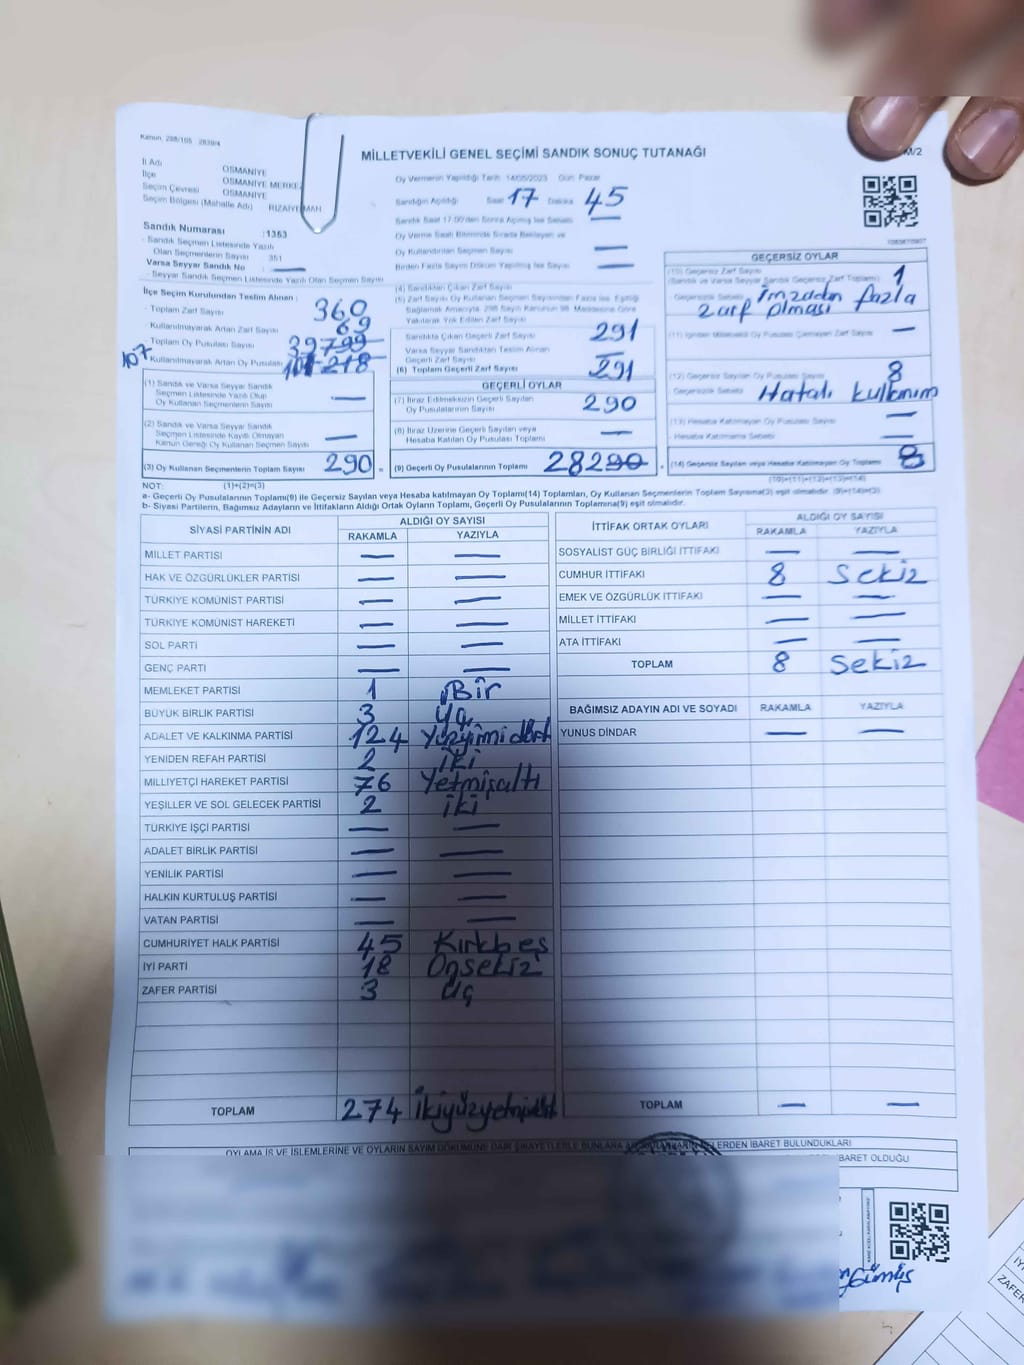 Kanun, 298/105 2839/4
MİLLETVEKİLİ GENEL SEÇİMİ SANDIK SONUÇ TUTANAĞI
M/2
İl Adı OSMANİYE
İlçe OSMANİYE MERKEZ
Seçim Çevresi OSMANİYE
Seçim Bölgesi (Mahalle Adı) RIZAİYE MAH
Oy Vermenin Yapıldığı Tarih 14/05/2023 Gün: Pazar
Sandığın Açıldığı Saat 17 Dakika 45
Sandık Saat 17.00'den Sonra Açılmış İse Sebebi —
Oy Verme Saati Bitiminde Sırada Bekleyen ve
Oy Kullandırılan Seçmen Sayısı —
Birden Fazla Sayım Döküm Yapılmış İse Sayısı —
Sandık Numarası :1353
- Sandık Seçmen Listesinde Yazılı
Olan Seçmenlerin Sayısı 351
Varsa Seyyar Sandık No —
- Seyyar Sandık Seçmen Listesinde Yazılı Olan Seçmen Sayısı
İlçe Seçim Kurulundan Teslim Alınan :
- Toplam Zarf Sayısı 360
- Kullanılmayarak Artan Zarf Sayısı 69
- Toplam Oy Pusulası Sayısı
107
- Kullanılmayarak Artan Oy Pusulası
(1) Sandık ve Varsa Seyyar Sandık
Seçmen Listesinde Yazılı Olup
Oy Kullanan Seçmenlerin Sayısı —
(2) Sandık ve Varsa Seyyar Sandık
Seçmen Listesinde Kayıtlı Olmayan
Kanun Gereği Oy Kullanan Seçmen Sayısı —
(3) Oy Kullanan Seçmenlerin Toplam Sayısı 290 =
(4) Sandıktan Çıkan Zarf Sayısı
(5) Zarf Sayısı Oy Kullanan Seçmen Sayısından Fazla ise, Eşitliği
Sağlamak Amacıyla, 298 Sayılı Kanunun 98. Maddesine Göre
Yakılarak Yok Edilen Zarf Sayısı
Sandıkta Çıkan Geçerli Zarf Sayısı 291
Varsa Seyyar Sandıktan Teslim Alınan
Geçerli Zarf Sayısı —
(6) Toplam Geçerli Zarf Sayısı 291
GEÇERLİ OYLAR
(7) İtiraz Edilmeksizin Geçerli Sayılan
Oy Pusulalarının Sayısı 290
(8) İtiraz Üzerine Geçerli Sayılan veya
Hesaba Katılan Oy Pusulası Toplamı —
(9) Geçerli Oy Pusulalarının Toplamı 28290
GEÇERSİZ OYLAR
(10) Geçersiz Zarf Sayısı
(Sandık ve Varsa Seyyar Sandık Geçersiz Zarf Toplamı) 1
Geçersizlik Sebebi imzadan fazla
zarf olması
(11) İçinden Milletvekili Oy Pusulası Çıkmayan Zarf Sayısı —
(12) Geçersiz Sayılan Oy Pusulası Sayısı 8
Geçersizlik Sebebi Hatalı kullanım
(13) Hesaba Katılmayan Oy Pusulası Sayısı —
Hesaba Katılmama Sebebi —
(14) Geçersiz Sayılan veya Hesaba Katılmayan Oy Toplamı 8
(10)+(11)+(12)+(13)=(14)
NOT: (1)+(2)=(3)
a- Geçerli Oy Pusulalarının Toplamı(9) ile Geçersiz Sayılan veya Hesaba katılmayan Oy Toplamı(14) Toplamları, Oy Kullanan Seçmenlerin Toplam Sayısına(3) eşit olmalıdır. (9)+(14)=(3)
b- Siyasi Partilerin, Bağımsız Adayların ve İttifakların Aldığı Ortak Oyların Toplamı, Geçerli Oy Pusulalarının Toplamına(9) eşit olmalıdır.
SİYASİ PARTİNİN ADI ALDIĞI OY SAYISI
RAKAMLA YAZIYLA
MİLLET PARTİSİ — —
HAK VE ÖZGÜRLÜKLER PARTİSİ — —
TÜRKİYE KOMÜNİST PARTİSİ — —
TÜRKİYE KOMÜNİST HAREKETİ — —
SOL PARTİ — —
GENÇ PARTİ — —
MEMLEKET PARTİSİ 1 Bir
BÜYÜK BİRLİK PARTİSİ 3 Üç
ADALET VE KALKINMA PARTİSİ 124 Yüzyirmidört
YENİDEN REFAH PARTİSİ 2 iki
MİLLİYETÇİ HAREKET PARTİSİ 76 Yetmişaltı
YEŞİLLER VE SOL GELECEK PARTİSİ 2 iki
TÜRKİYE İŞÇİ PARTİSİ — —
ADALET BİRLİK PARTİSİ — —
YENİLİK PARTİSİ — —
HALKIN KURTULUŞ PARTİSİ — —
VATAN PARTİSİ — —
CUMHURİYET HALK PARTİSİ 45 Kırkbeş
İYİ PARTİ 18 Onsekiz
ZAFER PARTİSİ 3 Üç
TOPLAM 274 ikiyüzyetmişdört
İTTİFAK ORTAK OYLARI ALDIĞI OY SAYISI
RAKAMLA YAZIYLA
SOSYALİST GÜÇ BİRLİĞİ İTTİFAKI — —
CUMHUR İTTİFAKI 8 Sekiz
EMEK VE ÖZGÜRLÜK İTTİFAKI — —
MİLLET İTTİFAKI — —
ATA İTTİFAKI — —
TOPLAM 8 Sekiz
BAĞIMSIZ ADAYIN ADI VE SOYADI RAKAMLA YAZIYLA
YUNUS DİNDAR — —
TOPLAM — —
OYLAMA İŞ VE İŞLEMLERİNE VE OYLARIN SAYIM DÖKÜMÜNE DAİR ŞİKAYETLERLE BUNLARA
LERDEN İBARET BULUNDUKLARI
İBARET OLDUĞU
Gümüş
İYİ
ZAFER